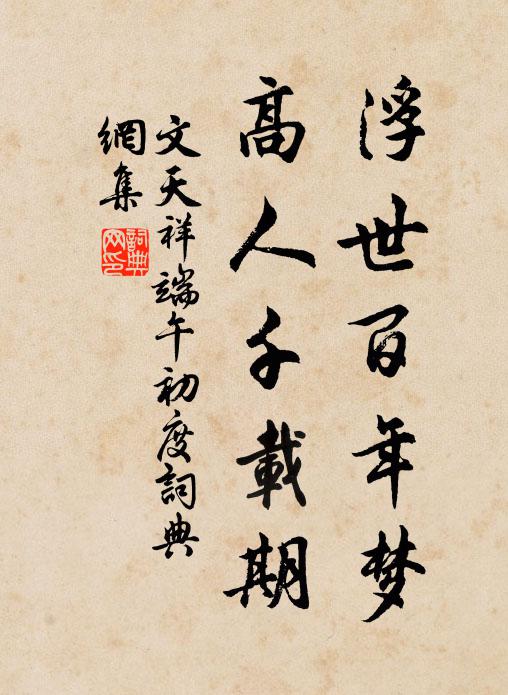 浮世百年梦
高人千載期
文天祥端午初度詞典
網集
詞典網印